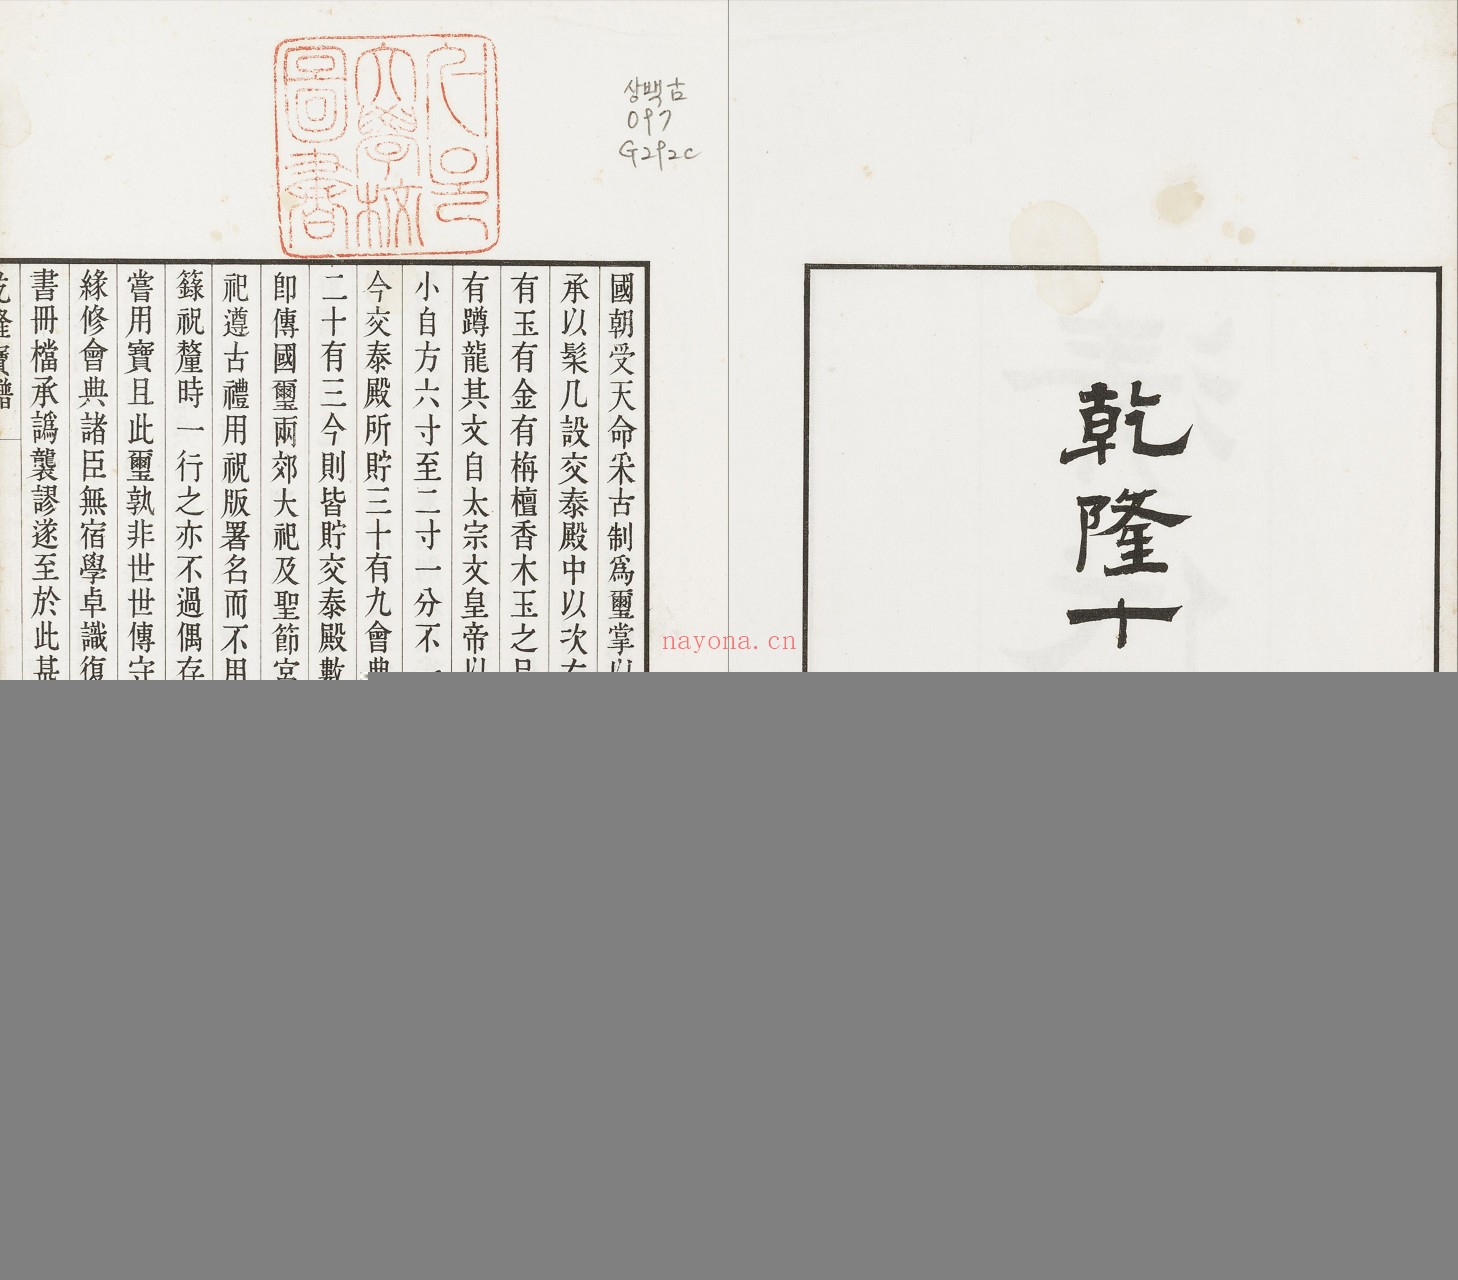 乾隆十
상백古
097
G292c
圖書
大學校
國朝受天命采古制爲璽掌以
承以髹几設交泰殿中以次
有玉有金有栴檀香木玉之
有蹲龍其文自太宗文皇帝以
小自方六寸至二寸一分不一
今交泰殿所貯三十有九會典
二十有三今則皆貯交泰殿數
卽傳國璽兩郊大祀及聖節宮
祀遵古禮用祝版署名而不用
籙祝釐時一行之亦不過偶存
嘗用寶且此璽孰非世世傳守
緣修會典諸臣無宿學卓識復
書冊檔承譌襲謬遂至於此甚
乾隆寶譜
nayona.cn